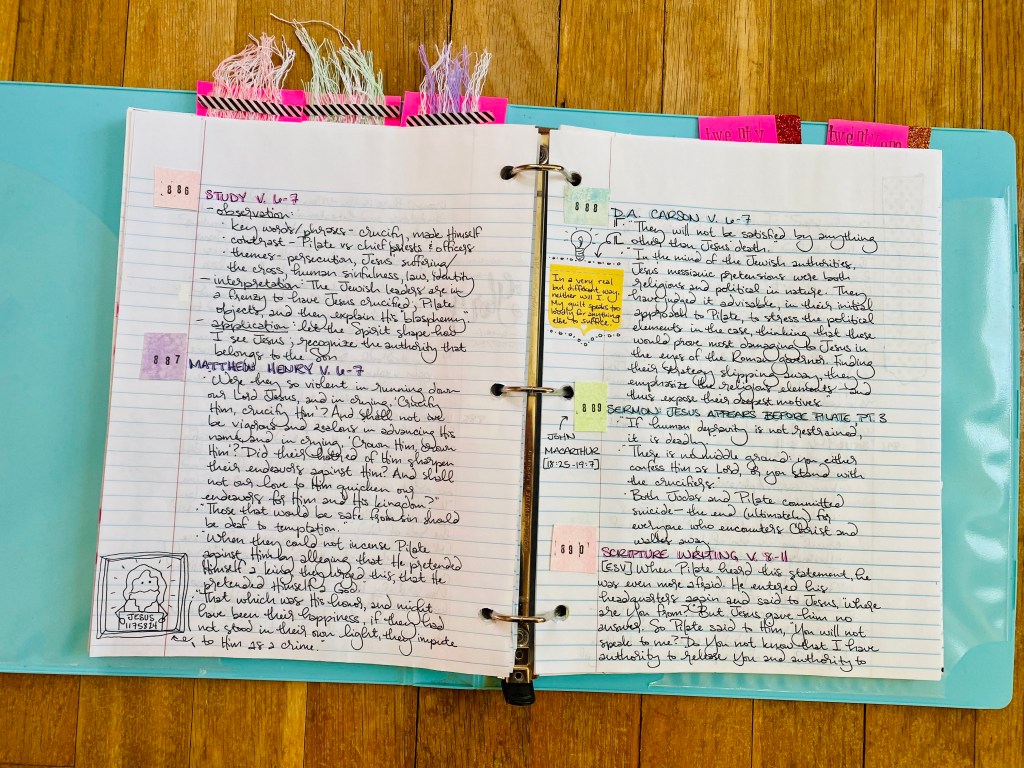 twenty
twenty one
886
STUDY V. 6-7
- observation:
· key words/phrases - crucify, made Himself
· contrast - Pilate vs chief priests & officers
· themes - persecution, Jesus' suffering/
the cross, human sinfulness, law, identity
- interpretation: The Jewish leaders are in
a frenzy to have Jesus crucified; Pilate
objects, and they explain His "blasphemy"
- application: let the Spirit shape how
I see Jesus; recognize the authority that
belongs to the Son
887
MATTHEW HENRY V. 6-7
· "Were they so violent in running down
our Lord Jesus, and in crying, 'Crucify
Him, crucify Him'? And shall not we
be vigorous and zealous in advancing His
name, and in crying, 'Crown Him, crown
Him'? Did their hatred of Him sharpen
their endeavors against Him? And shall
not our love to Him quicken our
endeavors for Him and His kingdom?"
· "Those that would be safe from sin should
be deaf to temptation."
· "When they could not incense Pilate
against Him by alleging that He pretended
Himself a king, they urged this, that He
pretended Himself a God.
· "That which was His honor, and might
have been their happiness, if they had
not stood in their own light, they impute
to Him as a crime."
JESUS
1175824
888
D.A. CARSON V. 6-7
· "They will not be satisfied by anything
other than Jesus' death."
· "In the mind of the Jewish authorities,
Jesus' messianic pretensions were both
religious and political in nature. They
have judged it advisable, in their initial
approach to Pilate, to stress the political
elements in the case, thinking that these
would prove most damaging to Jesus in
the eyes of the Roman governor. Finding
their strategy slipping away, they
emphasize the religious elements - and
thus expose their deepest motives."
In a very real
but different way,
neither will I.
My guilt speaks too
loudly for anything
else to suffice.
889
SERMON: JESUS APPEARS BEFORE PILATE, PT. 3
JOHN
MACARTHUR
[18:25-19:7]
· "If human depravity is not restrained,
it is deadly."
· "There is no middle ground: you either
confess Him as Lord, or you stand with
the crucifiers."
· Both Judas and Pilate committed
suicide - the end (ultimately) for
everyone who encounters Christ and
walks away
890
SCRIPTURE WRITING V. 8-11
[ESV] When Pilate heard this statement, he
was even more afraid. He entered his
headquarters again and said to Jesus, "Where
are You from?" But Jesus gave him no
answer. So Pilate said to Him, "You will not
speak to me? Do You not know that I have
authority to release You and authority to